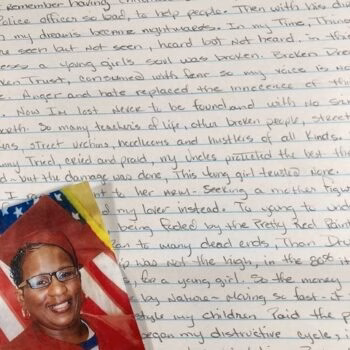 I Remember having
Police officer so bad, to help people. Then with his divi
my dreams become nightmares. In my Time, Thing
seen but not seen, heard but not heard - in this
a young girls soul was broken. Broken Dre
Trust, consumed with fear so my voice is no
Anger and hate replaced the innocence of th
Now Im lost never to be found and with No san
So many teachers of life, other broken people, street
street urchins, and hustlers of all kinds.
Tried, cried and praid, my uncles protected the best th
but the damage was done, This young girl
to her new - Seeking a mother figu
my lover instead. To young to und
being faded by the Pretty Red Paint
to many dead ends, Than Dru
was not the high, in the 80s it
for a young girl. So the money
by Nature - Moving so fast. It
style my children Paid the p
began my distructive cycle, i